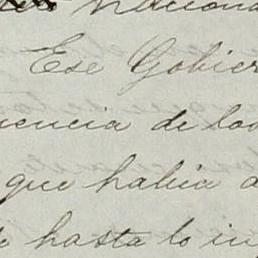 naciona
Ese Gobier
uencia de los
que habia a
hasta lo in